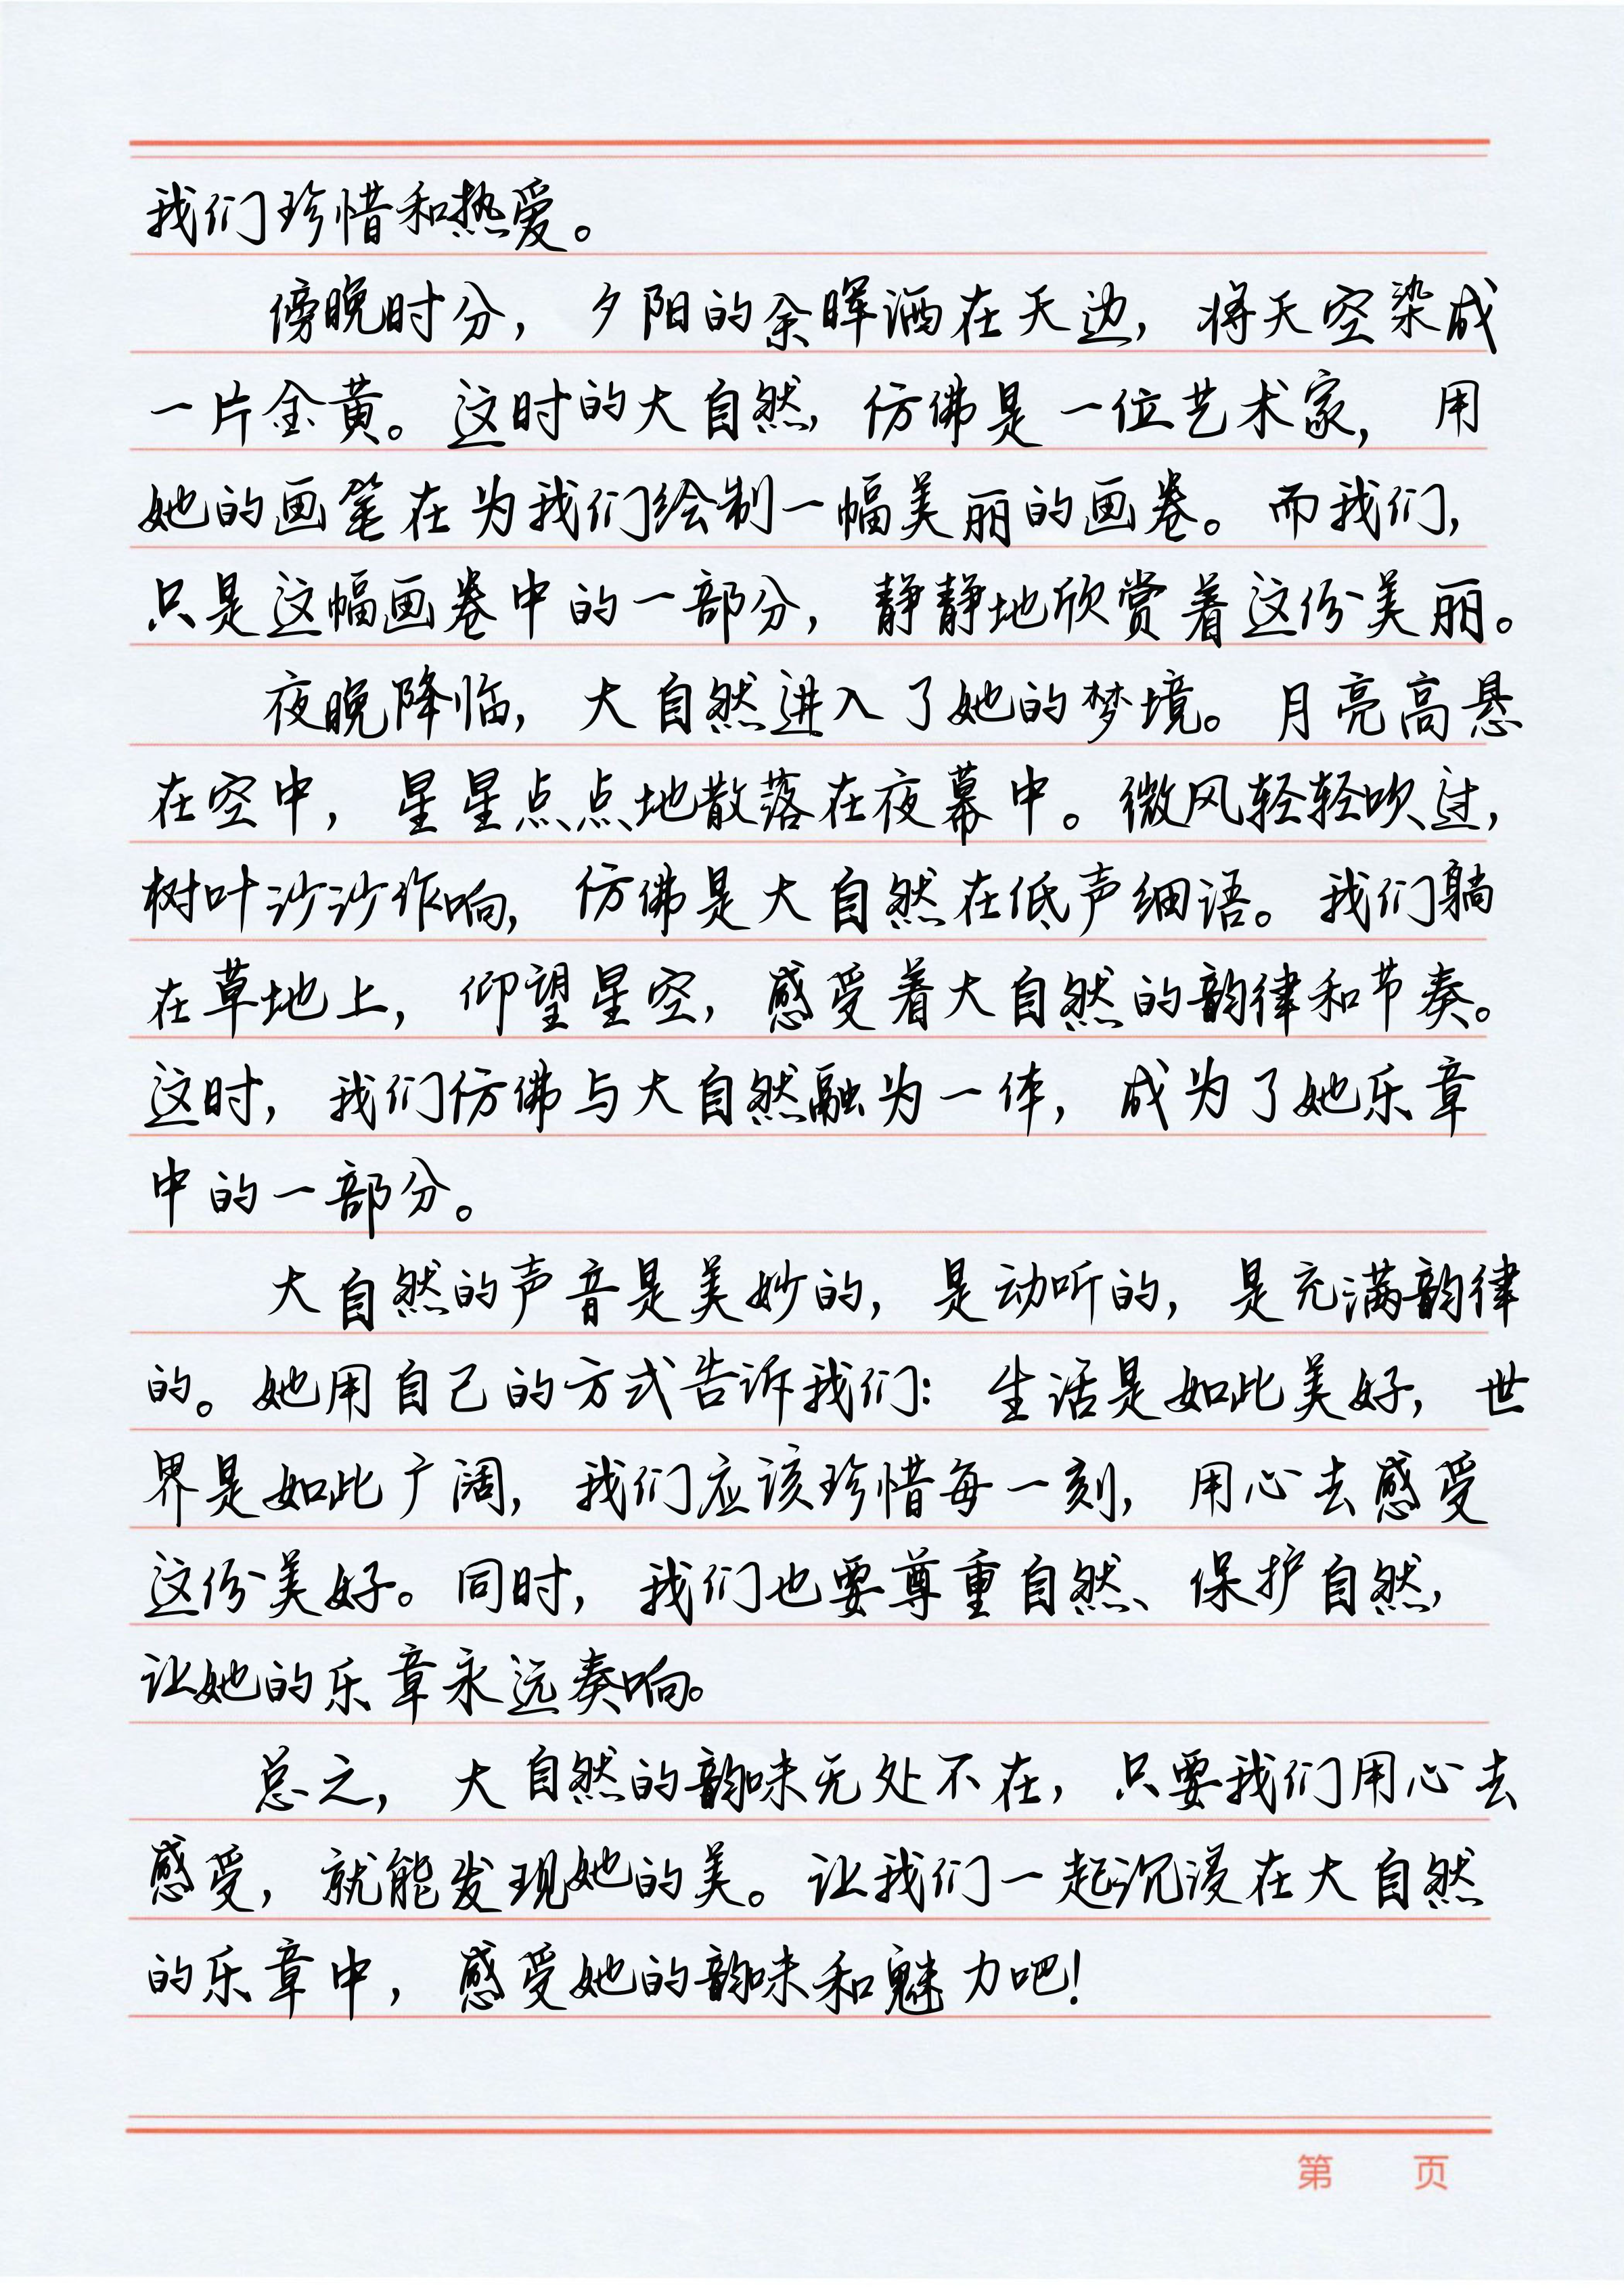 我们珍惜和热爱。
傍晚时分，夕阳的余晖洒在天边，将天空染成
一片金黄。这时的大自然，仿佛是一位艺术家，用
她的画笔在为我们绘制一幅美丽的画卷。而我们，
只是这幅画卷中的一部分，静静地欣赏着这份美丽。
夜晚降临，大自然进入了她的梦境。月亮高悬
在空中，星星点点地散落在夜幕中。微风轻轻吹过，
树叶沙沙作响，仿佛是大自然在低声细语。我们躺
在草地上，仰望星空，感受着大自然的韵律和节奏。
这时，我们仿佛与大自然融为一体，成为了她乐章
中的一部分。
大自然的声音是美妙的，是动听的，是充满韵律
的。她用自己的方式告诉我们：生活是如此美好，世
界是如此广阔，我们应该珍惜每一刻，用心去感受
这份美好。同时，我们也要尊重自然、保护自然，
让她的乐章永远奏响。
总之，大自然的韵味无处不在，只要我们用心去
感受，就能发现她的美。让我们一起沉浸在大自然
的乐章中，感受她的韵味和魅力吧！
第 页